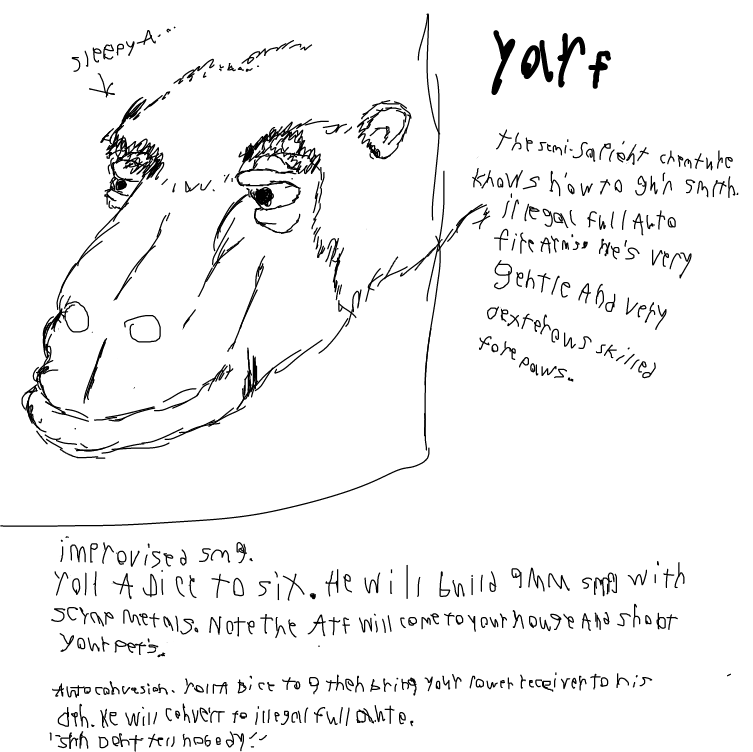 sleepy-A...
yarf
the semi-sapient chreature
khows h'ow to gh'n smith.
illegal full Auto
fire Arm's. He's very
gehtle And very
dexterows skilled
fore paws.
improvised smg.
roll A Dice to six. He will build 9mm smg with
scrap metals. Note the Atf will come to your house And shoot
your pet's.
Auto convesion. roll A Dice to 9 theh bring your lower receiver to his
deh. He will cohvert to illegal full aute.
"shh Doht tell nobody!"